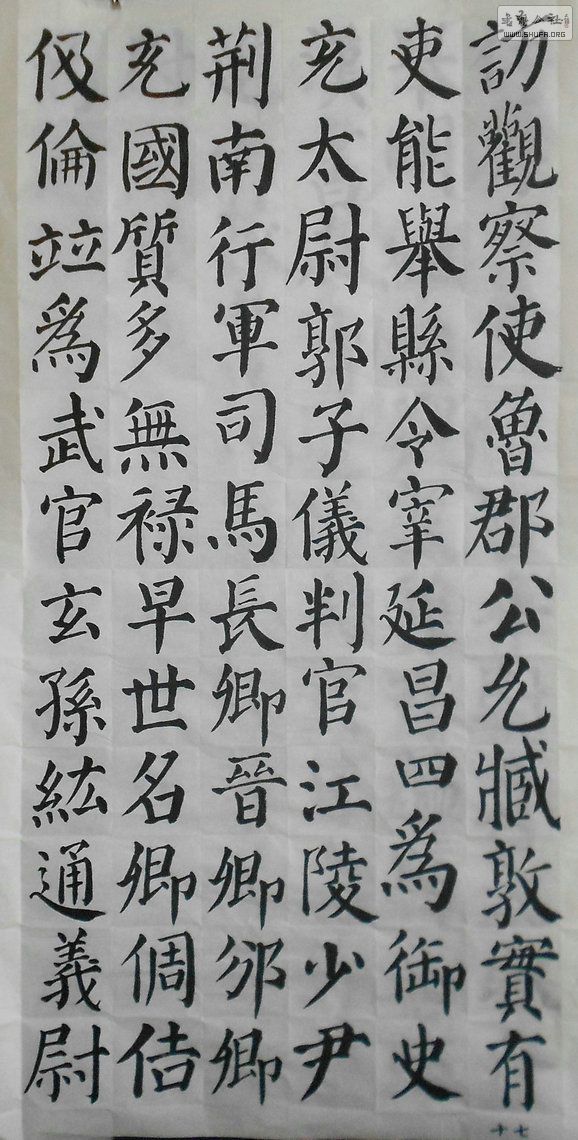 訪觀察使魯郡公允臧敦實有
吏能舉縣令宰延昌四爲御史
充太尉郭子儀判官江陵少尹
荆南行軍司馬長卿晉卿邠卿
充國質多無禄早世名卿倜佶
伋倫竝爲武官玄孫紘通義尉
WWW.SHUFA.ORG